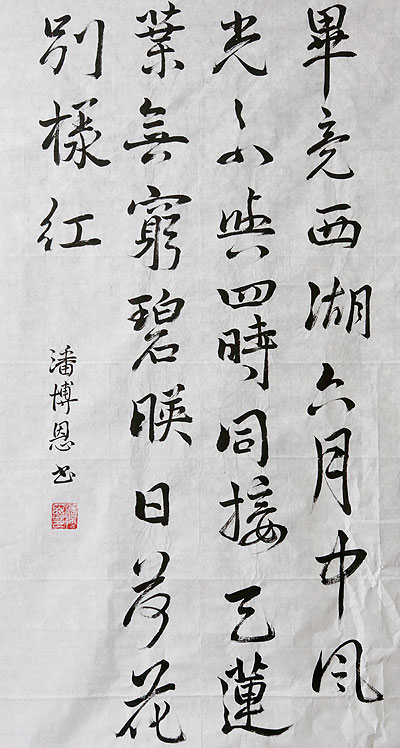 畢竟西湖六月中風
光不與四時同接天蓮
葉無窮碧暎日荷花
別樣紅
潘博恩书